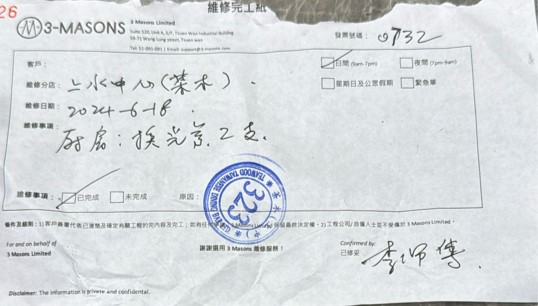 26
維修完工紙
3-MASONS
3 Masons Limited
Tsuen Wan Industrial Building
Wang Lung Street, Tsuen Wan
發票號碼： 0732
客戶：
日間 (9am-7pm)
夜間 (7pm-9am)
維修分店： 上水中心(榮木).
星期日及公眾假期
緊急單
維修日期： 2024-6-18.
維修事項：
厨房：換光管2支.
維修事項：
已完成
未完成
原因：
323
條件及細則：
謝謝選用 3 Masons 維修服務！
For and on behalf of
3 Masons Limited
Confirmed by:
已修妥
李師傅.
Disclaimer: The information is private and confidential.